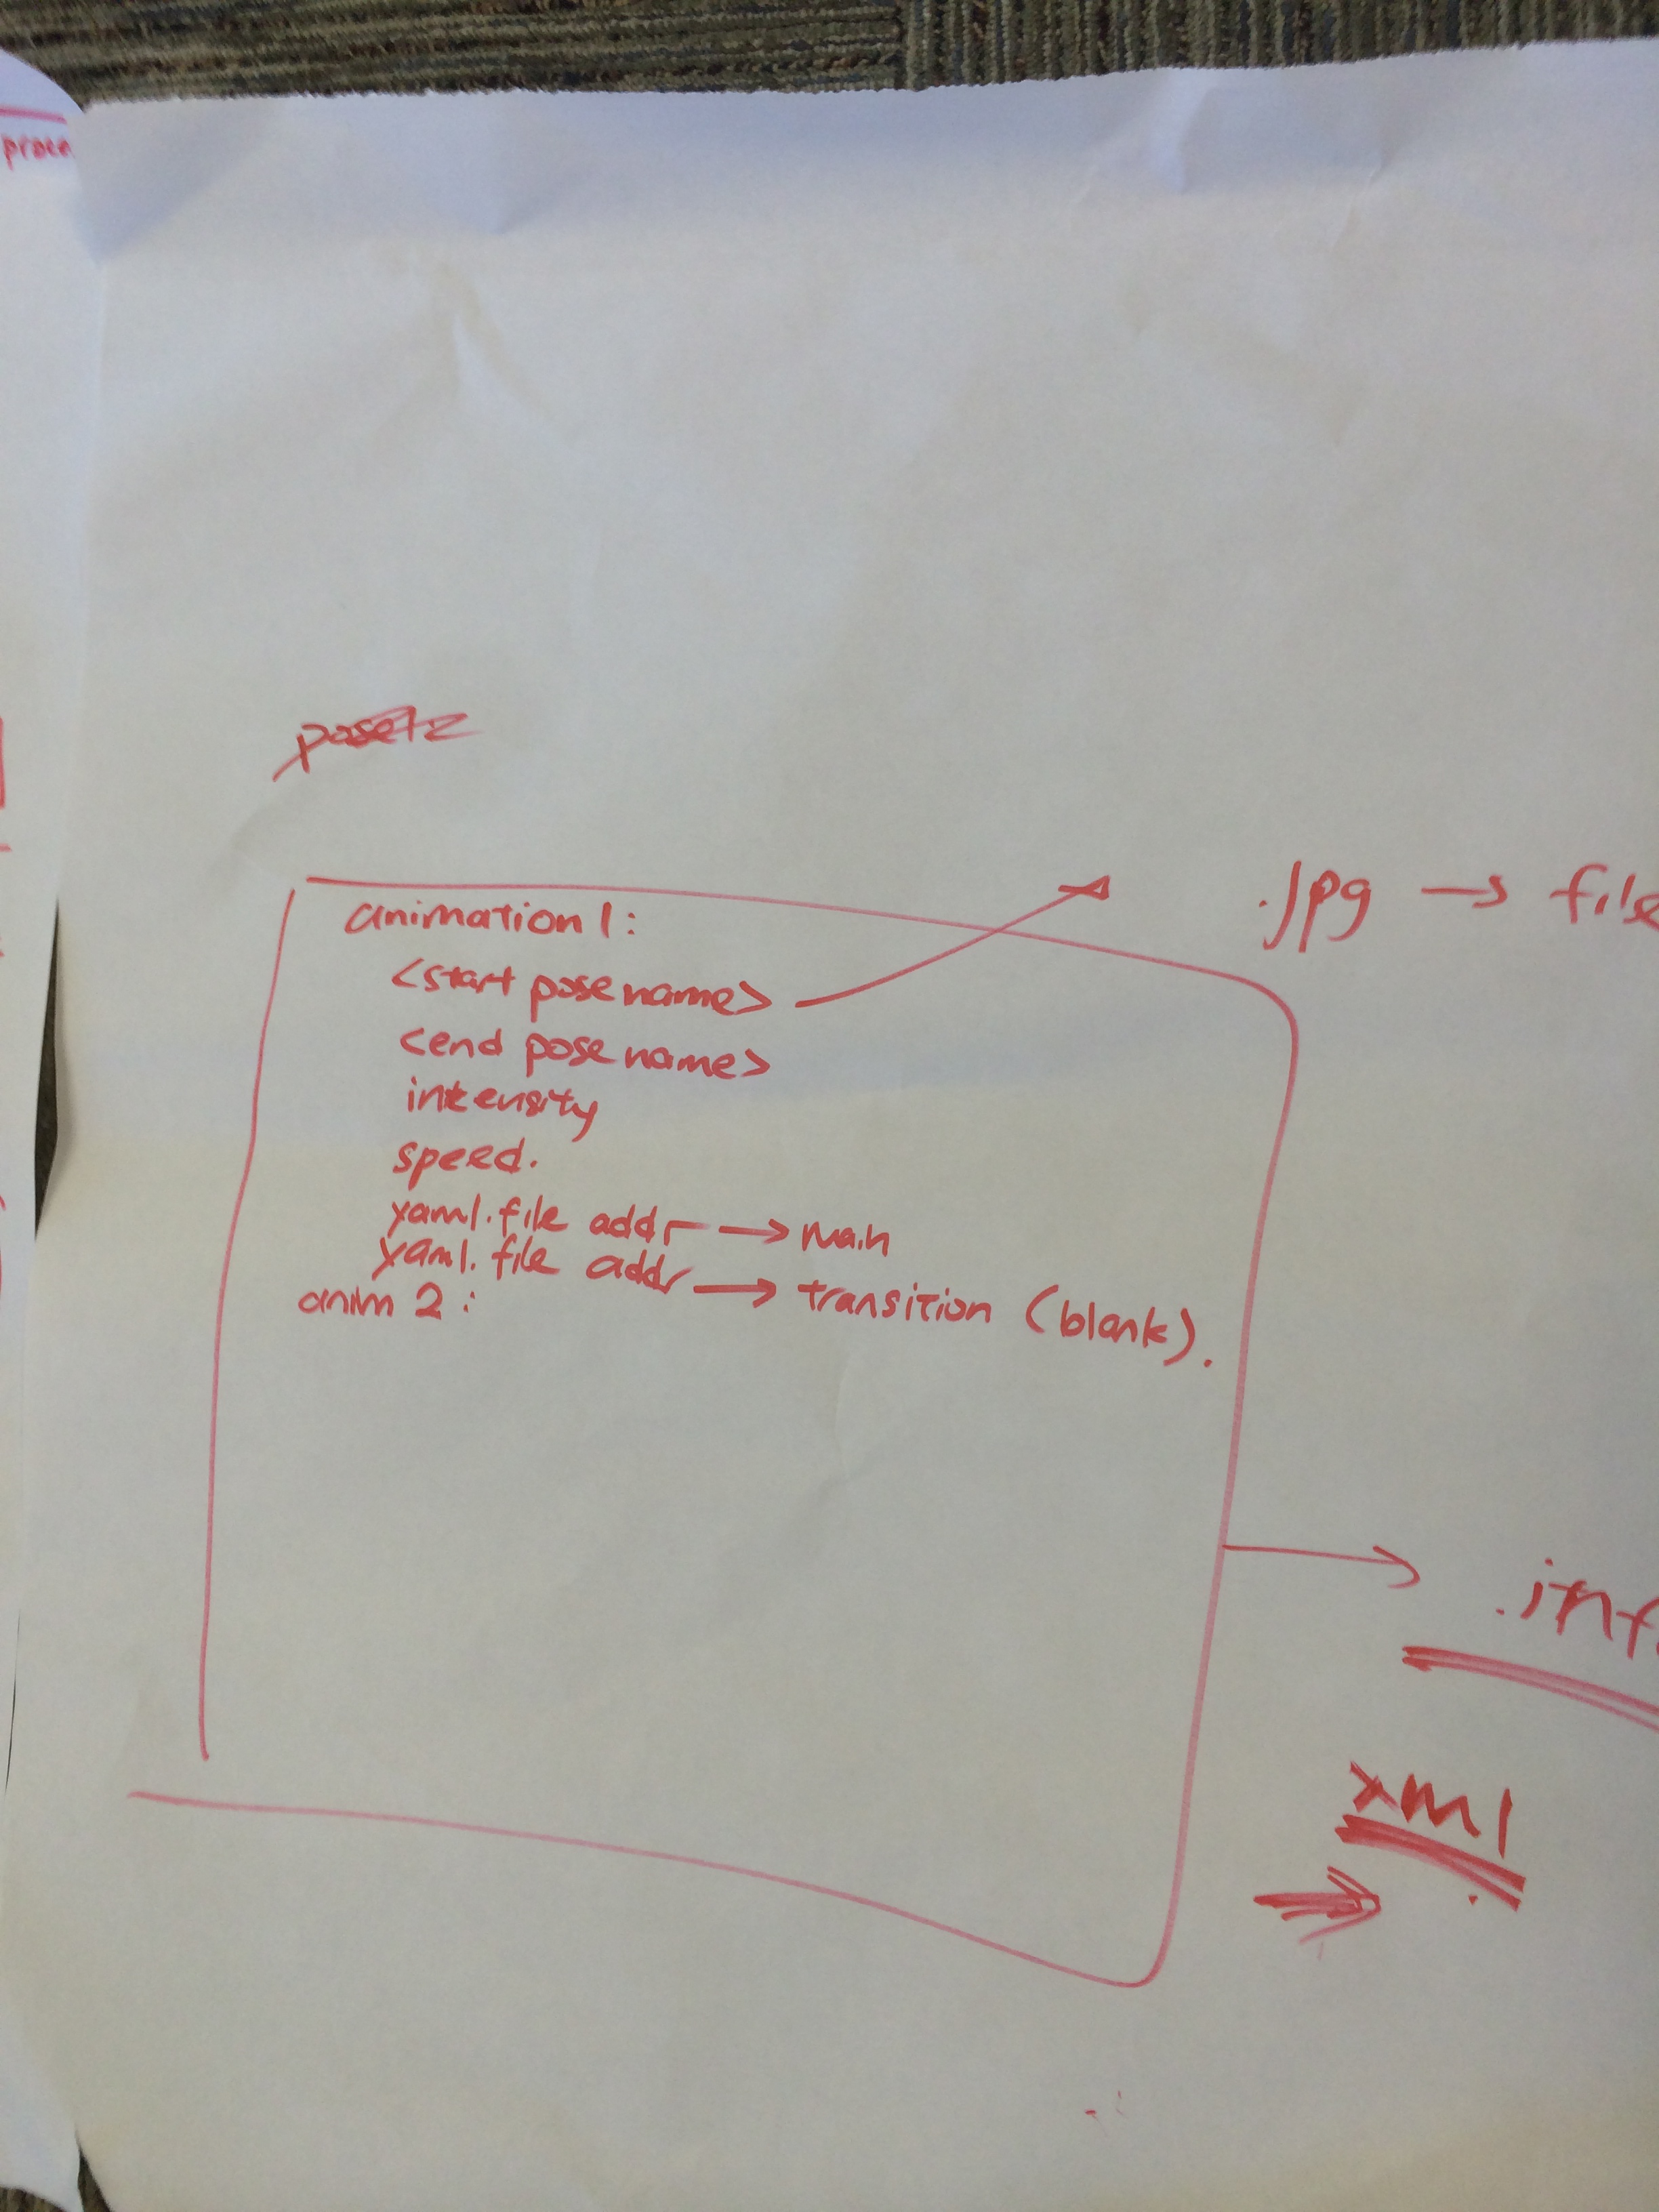 animation 1:
.jpg → file
<start pose name>
<end pose name>
intensity
speed.
yaml.file addr → main
yaml.file addr → transition (blank).
anim 2:
xml